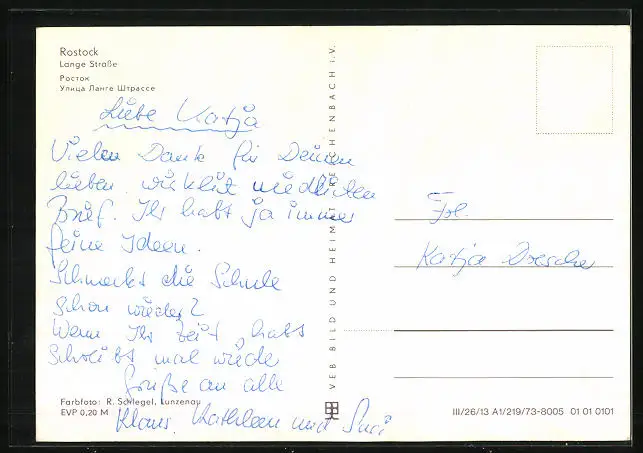 Rostock
Lange Straße
Росток
Улица Ланге Штрассе
Liebe Katja
Vielen Dank für Deinen
lieben wirklich niedlichen
Brief. Ihr habt ja immer
feine Ideen.
Schmeckt die Schule
schon wieder?
Wenn Ihr Zeit habt
schreibt mal wieder
Grüße an alle
Klaus, Kathleen und
Farbfoto: R. Schlegel, Lunzenau
EVP 0,20 M
VEB BILD UND HEIMAT REICHENBACH i. V.
Frl.
Katja Dresche
III/26/13 A1/219/73-8005 01 01 0101